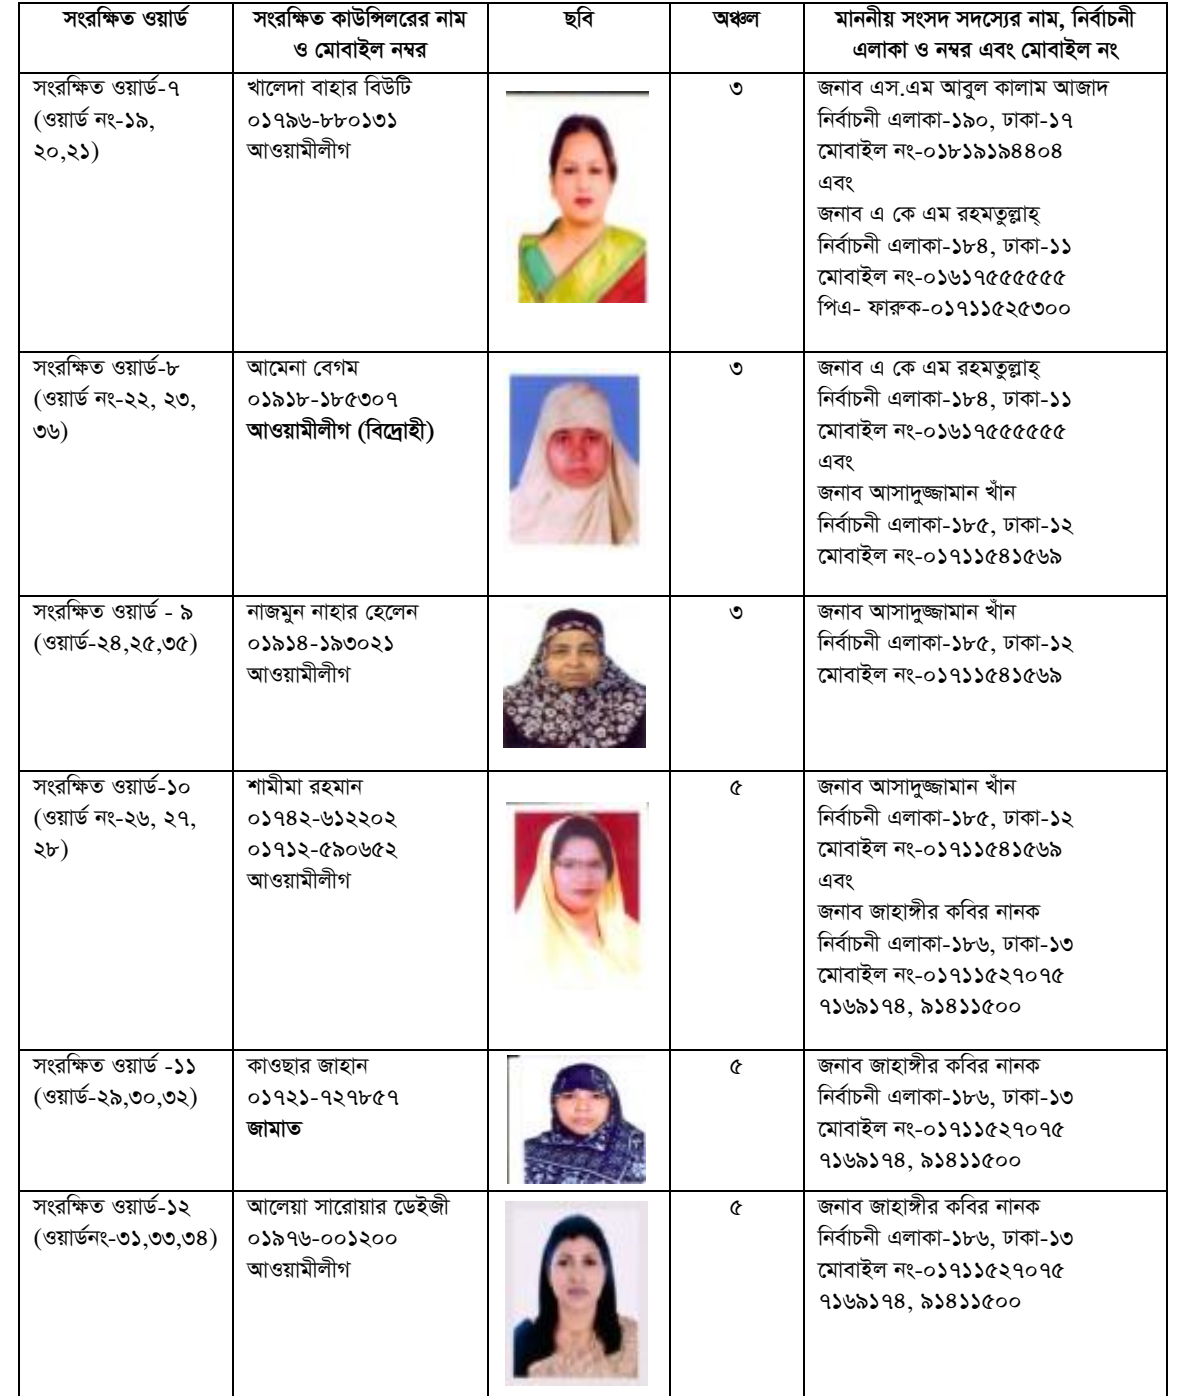 সংরক্ষিত ওয়ার্ড
সংরক্ষিত কাউন্সিলরের নাম
ও মোবাইল নম্বর
ছবি
অঞ্চল
মাননীয় সংসদ সদস্যের নাম, নির্বাচনী
এলাকা ও নম্বর এবং মোবাইল নং
সংরক্ষিত ওয়ার্ড-৭
(ওয়ার্ড নং-১৯,
২০,২১)
খালেদা বাহার বিউটি
০১৭৯৬-৮৮০১৩১
আওয়ামীলীগ
৩
জনাব এস.এম আবুল কালাম আজাদ
নির্বাচনী এলাকা-১৯০, ঢাকা-১৭
মোবাইল নং-০১৮১৯১৯৪৪০৪
এবং
জনাব এ কে এম রহমতুল্লাহ্
নির্বাচনী এলাকা-১৮৪, ঢাকা-১১
মোবাইল নং-০১৬১৭৫৫৫৫৫৫
পিএ- ফারুক-০১৭১১৫২৫৩০০
সংরক্ষিত ওয়ার্ড-৮
(ওয়ার্ড নং-২২, ২৩,
৩৬)
আমেনা বেগম
০১৯১৮-১৮৫৩০৭
আওয়ামীলীগ (বিদ্রোহী)
৩
জনাব এ কে এম রহমতুল্লাহ্
নির্বাচনী এলাকা-১৮৪, ঢাকা-১১
মোবাইল নং-০১৬১৭৫৫৫৫৫৫
এবং
জনাব আসাদুজ্জামান খাঁন
নির্বাচনী এলাকা-১৮৫, ঢাকা-১২
মোবাইল নং-০১৭১১৫৪১৫৬৯
সংরক্ষিত ওয়ার্ড - ৯
(ওয়ার্ড-২৪,২৫,৩৫)
নাজমুন নাহার হেলেন
০১৯১৪-১৯৩০২১
আওয়ামীলীগ
৩
জনাব আসাদুজ্জামান খাঁন
নির্বাচনী এলাকা-১৮৫, ঢাকা-১২
মোবাইল নং-০১৭১১৫৪১৫৬৯
সংরক্ষিত ওয়ার্ড-১০
(ওয়ার্ড নং-২৬, ২৭,
২৮)
শামীমা রহমান
০১৭৪২-৬১২২০২
০১৭১২-৫৯০৬৫২
আওয়ামীলীগ
৫
জনাব আসাদুজ্জামান খাঁন
নির্বাচনী এলাকা-১৮৫, ঢাকা-১২
মোবাইল নং-০১৭১১৫৪১৫৬৯
এবং
জনাব জাহাঙ্গীর কবির নানক
নির্বাচনী এলাকা-১৮৬, ঢাকা-১৩
মোবাইল নং-০১৭১১৫২৭০৭৫
৭১৬৯১৭৪, ৯১৪১১৫০০
সংরক্ষিত ওয়ার্ড -১১
(ওয়ার্ড-২৯,৩০,৩২)
কাওছার জাহান
০১৭২১-৭২৭৮৫৭
জামাত
৫
জনাব জাহাঙ্গীর কবির নানক
নির্বাচনী এলাকা-১৮৬, ঢাকা-১৩
মোবাইল নং-০১৭১১৫২৭০৭৫
৭১৬৯১৭৪, ৯১৪১১৫০০
সংরক্ষিত ওয়ার্ড-১২
(ওয়ার্ডনং-৩১,৩৩,৩৪)
আলেয়া সারোয়ার ডেইজী
০১৯৭৬-০০১২০০
আওয়ামীলীগ
৫
জনাব জাহাঙ্গীর কবির নানক
নির্বাচনী এলাকা-১৮৬, ঢাকা-১৩
মোবাইল নং-০১৭১১৫২৭০৭৫
৭১৬৯১৭৪, ৯১৪১১৫০০